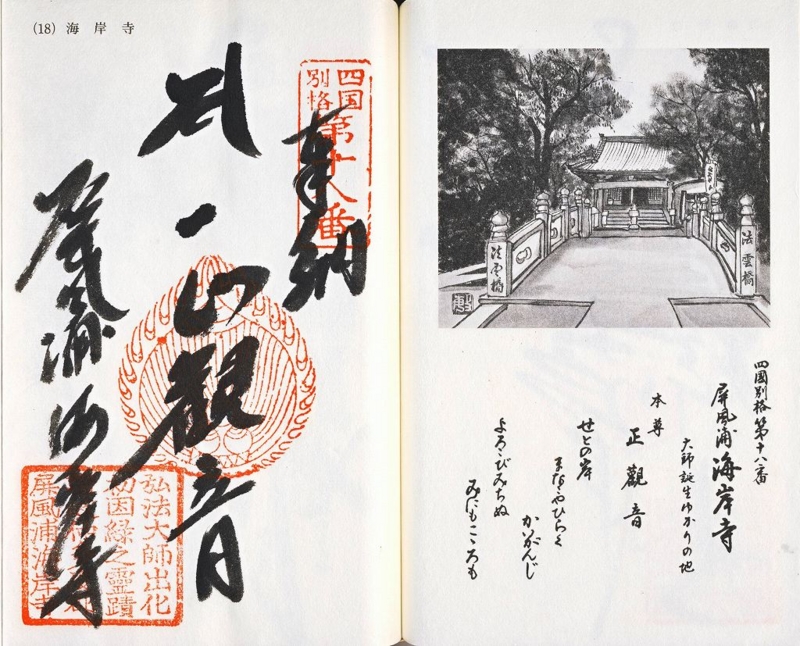 (18) 海岸寺
四国
別格
第十八番
奉納
觀音
屏風浦海岸寺
弘法大師出化
初因縁之靈蹟
屏風浦海岸寺
法雲橋
法雲橋
四國別格第十八番
屏風浦 海岸寺
大師誕生ゆかりの地
本尊
正觀音
せとの岸
まなこやひらく
かいがんじ
よろこびみちぬ
みにもこころも